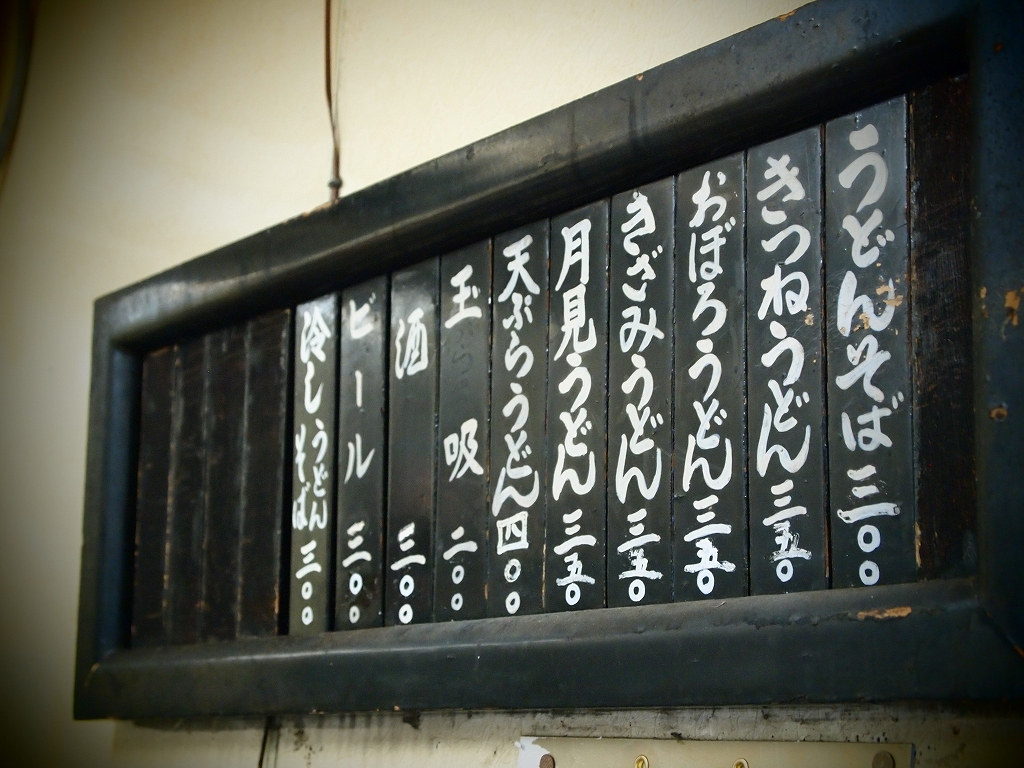 うどんそば三〇〇
きつねうどん三五〇
おぼろうどん三五〇
きざみうどん三五〇
月見うどん三五〇
天ぷらうどん四〇〇
玉吸二〇〇
酒三〇〇
ビール三〇〇
冷しうどんそば三〇〇